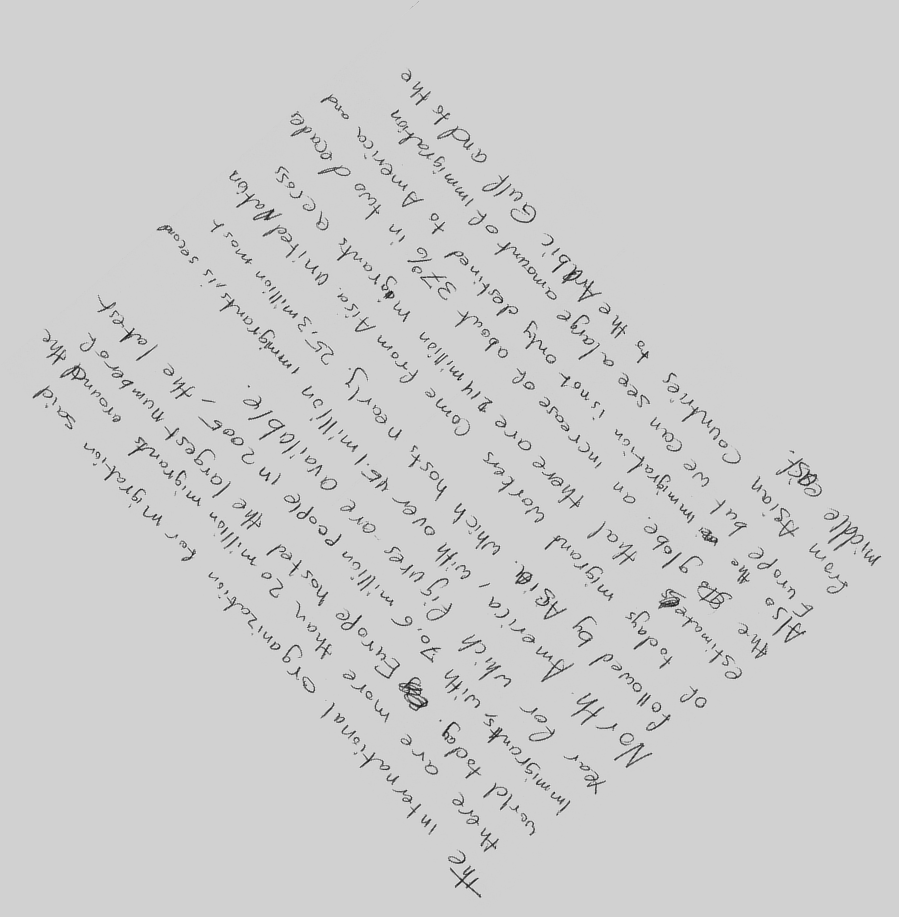 The international organization for migration said
there are more than 20 million migrants around the
world today. Europe hosted the largest number of
immigrants, with 70.6 million people in 2005, the latest
year for which figures are available.
North America, with over 45.1 million immigrants, is second
followed by Asia. which hosts nearly 25,3 million most
of todays migrand workers come from Aisa. united Nation
estimates that there are 214 million migrants across
the globe. an increase of about 37% in two decade
Also the immigration is not only destined to America and
Europe but we can see a large amount of immigration
from Asian countries to the Arabic Gulf and to the
middle east.